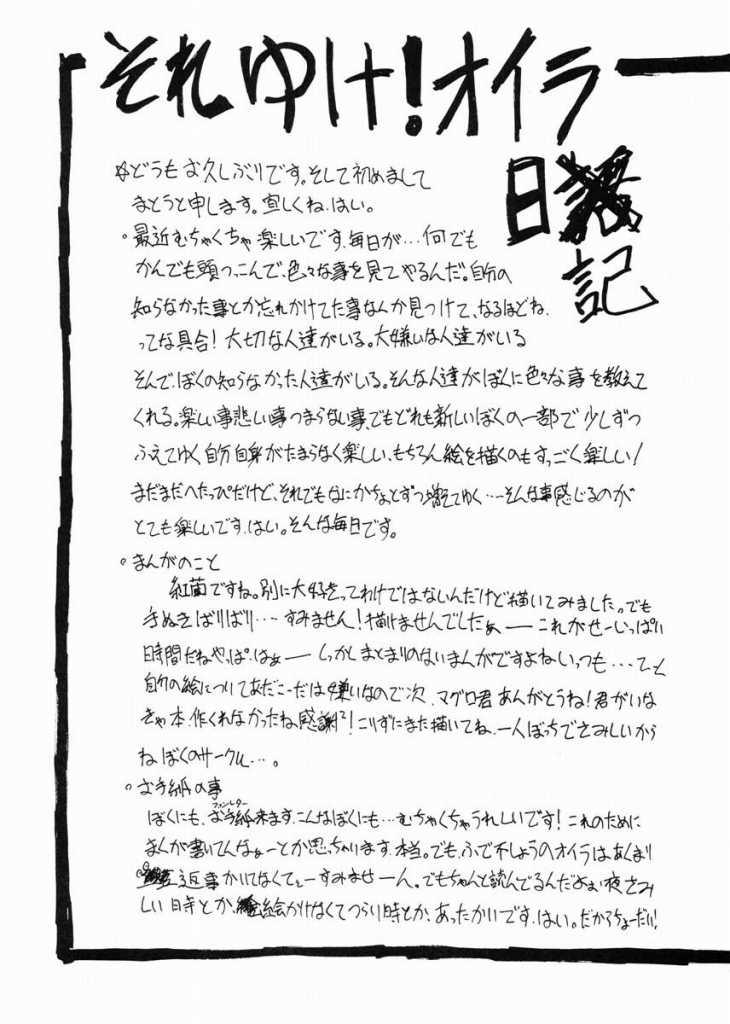 それゆけ!オイラ
日記
☆どうもお久しぶりです。そして初めまして
まとうと申します。宜しくね。はい。
・最近むちゃくちゃ楽しいです、毎日が…何でも
かんでも頭つっこんで、色々な事を見てやるんだ。自分の
知らなかった事とか忘れかけてた事なんか見つけて、なるほどね、
ってな具合!大切な人達がいる。大嫌いな人達がいる
そんで、ぼくの知らなかった人達がいる。そんな人達がぼくに色々な事を教えて
くれる。楽しい事悲しい事つまらない事、でもどれも新しいぼくの一部で少しずつ
ふえてゆく自分自身がたまらなく楽しい、もちろん絵を描くのもすっごく楽しい!
まだまだへたっぴだけど、それでもなにかちょっとずつ増えてゆく…そんな事感じるのが
とても楽しいです、はい。そんな毎日です。
・まんがのこと
紅蘭ですね。別に大好きってわけではないんだけど描いてみました。でも
手ぬきばりばり…すみません!描けませんでしたぁーこれがせーいっぱい
時間だねやっぱ、はぁーしっかしまとまりのないまんがですよねいつも…てっと
自分の絵についてあだこーだは嫌いなので次、マグロ君あんがとうね!君がいな
きゃ本、作くれなかったね感謝!こりずにまた描いてね、一人ぼっちでさみしいから
ねぼくのサークル…。
・お手紙の事
ぼくにも、お手紙(ファンレター)来ます、こんなぼくにも…むちゃくちゃうれしいです!これのために
まんが書いてんなぁーとか思っちゃいます、本当。でも、ふで不しょうのオイラはあんまり
返事かいてなくてぇーすみませーん。でもちゃんと読んでるんだよぉ夜さみ
しい時とか、絵かけなくてつらい時とか、あったかいです、はい。だからちょーだい!